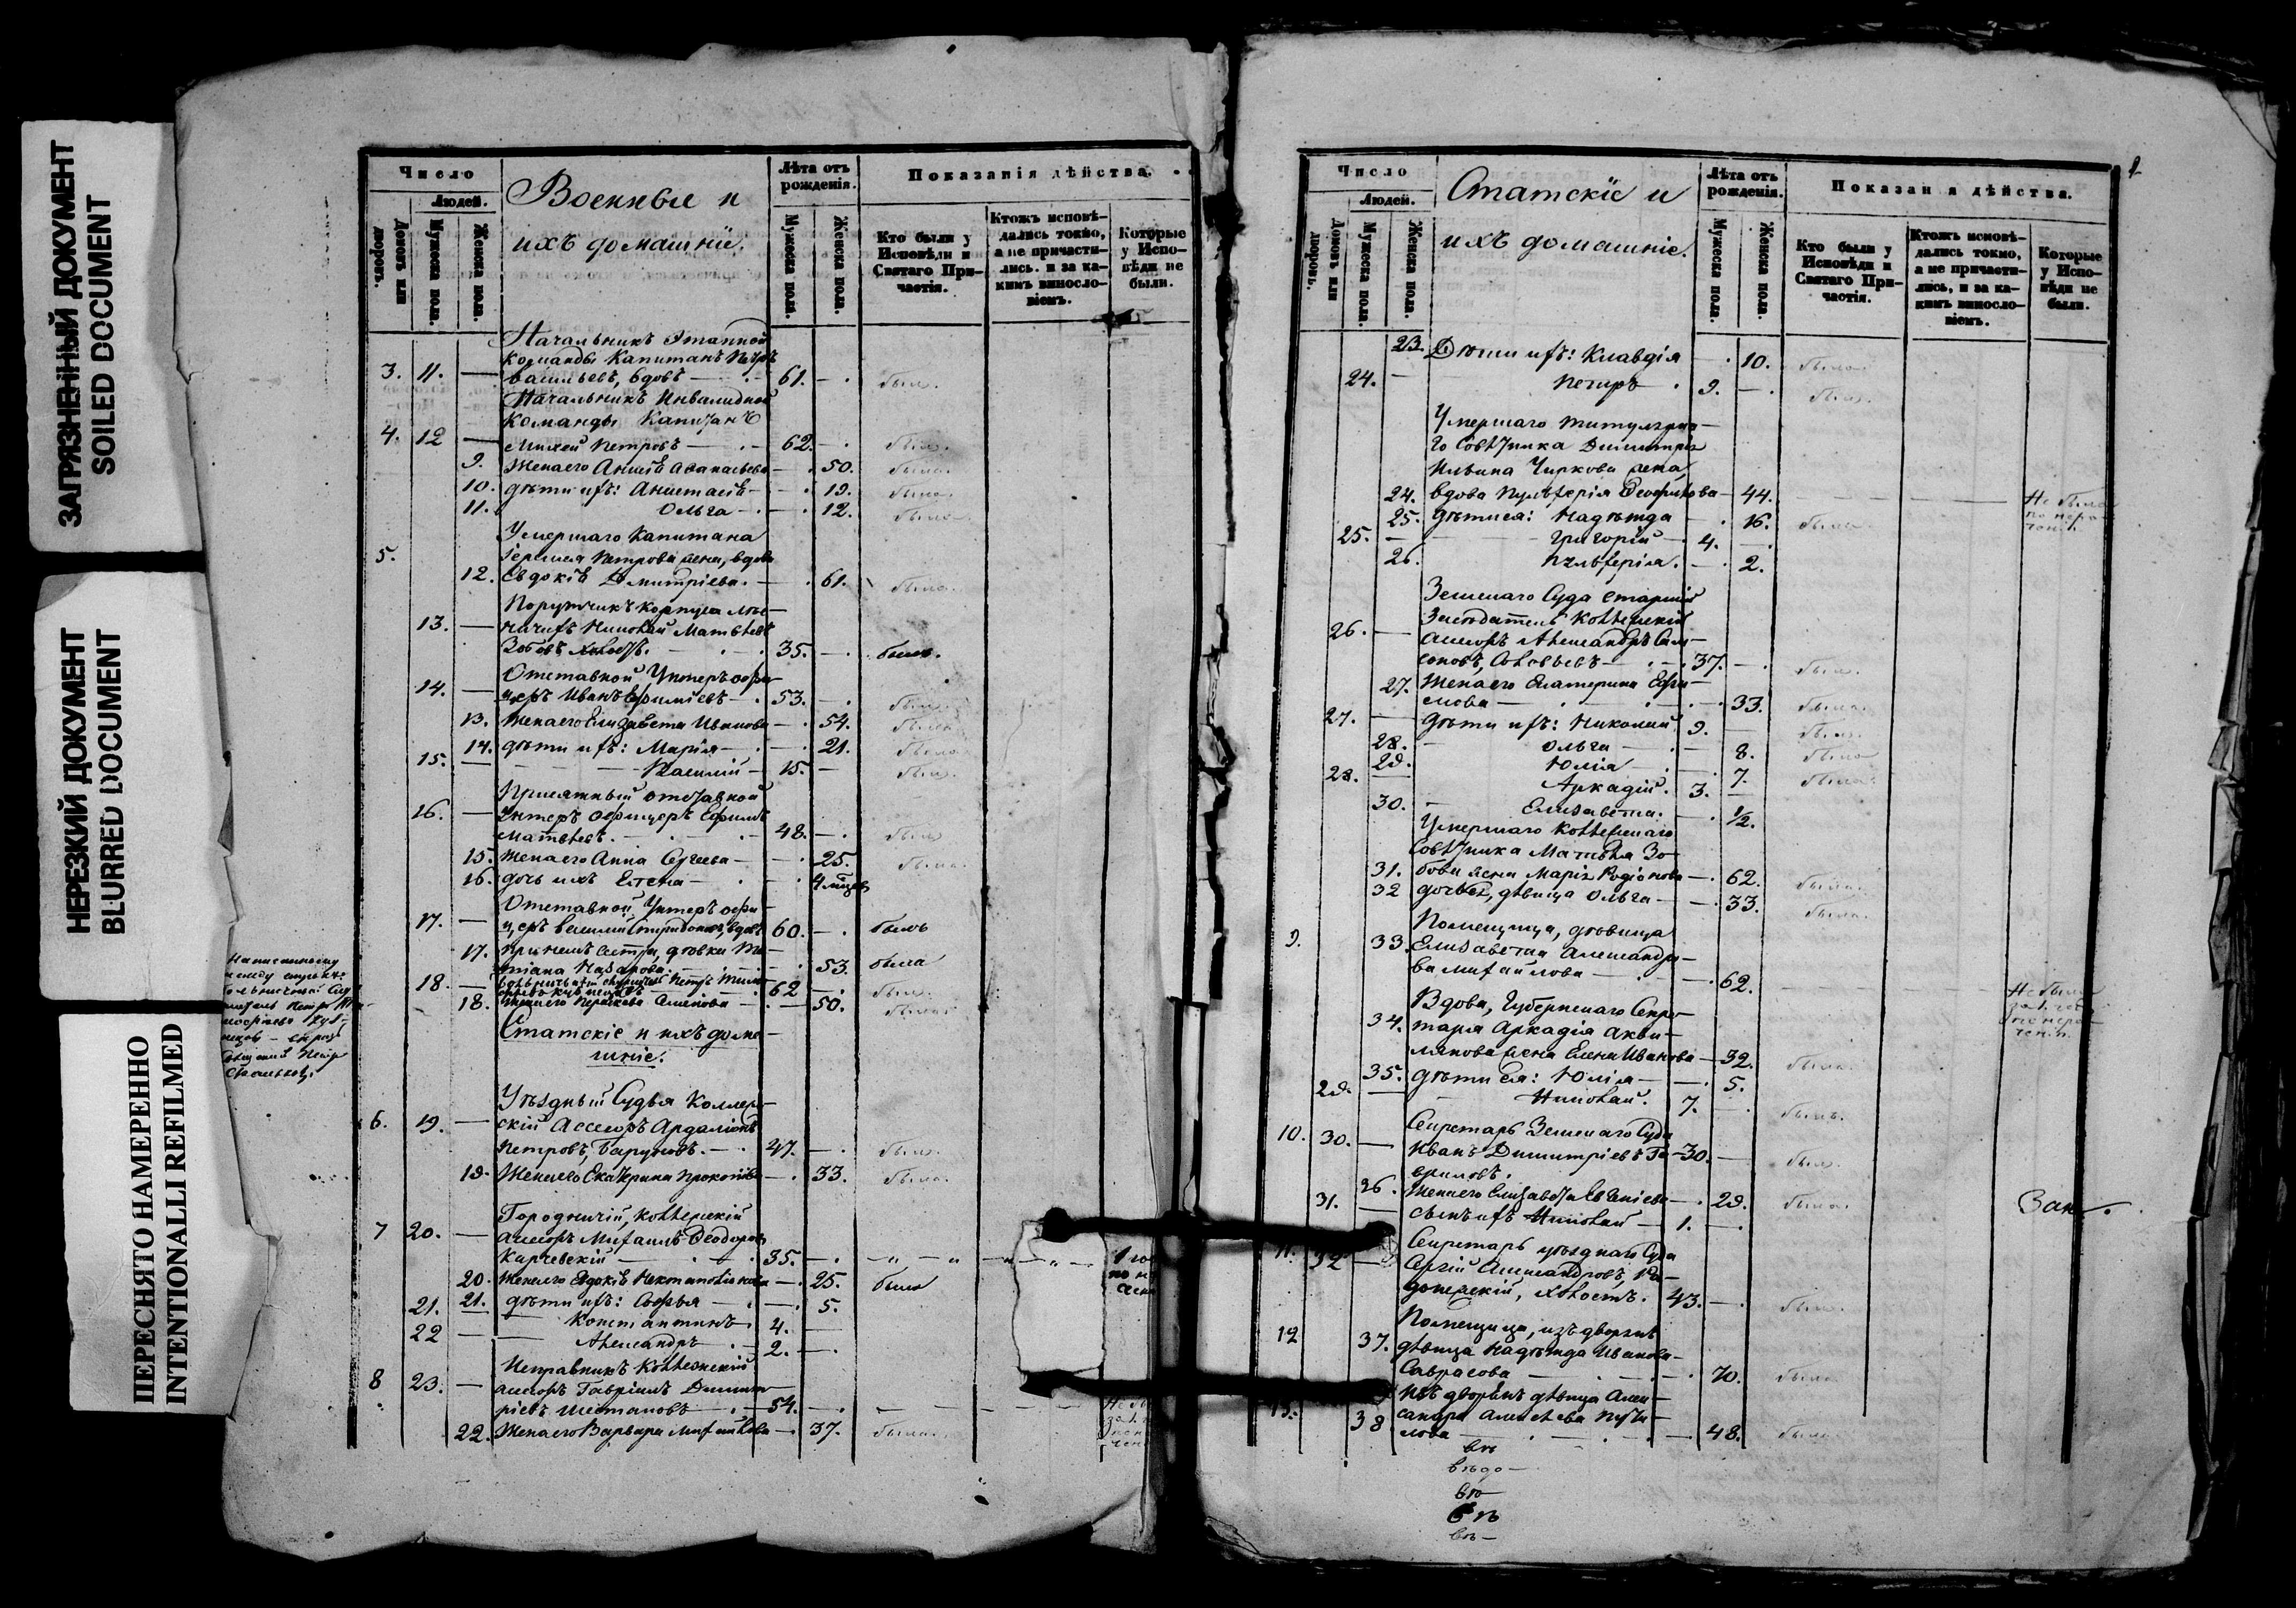 ЗАГРЯЗНЕННЫЙ ДОКУМЕНТ
SOILED DOCUMENT
НЕРЕЗКИЙ ДОКУМЕНТ
BLURRED DOCUMENT
ПЕРЕСНЯТО НАМЕРЕННО
INTENTIONALLI REFILMED
Число
Людей.
Домовъ или дворовъ.
Мужеска пола.
Женска пола.
Военные и
ихъ домашніе.
Лѣта отъ рожденія.
Мужеска пола.
Женска пола.
Показанія дѣйства.
Кто были у Исповѣди и Святаго Причастія.
Ктожъ исповѣдались токмо, а не причастились. и за какимъ винословіемъ.
Которые у Исповѣди не были.
Начальникъ Этапной
команды Капитанъ Петръ
3. 11. — Васильевъ, вдовъ — 61. — былъ.
Начальникъ Инвалидной
команды Капитанъ
4. 12 — Михей Петровъ — 62. — былъ.
9. Жена его Анисія Аѳанасьева — 50. была.
10. дѣти ихъ: Анастасія — 19. была.
11. Ольга — 12. была.
Умершаго Капитана
5. Петрова жена, вдова
12. Евдокія Димитріева. — 61. была.
Порутчикъ корпуса лѣс-
13. — ничихъ Николай Матвѣевъ
Зобовъ холостъ. — 35. — былъ.
Отставной Унтеръ офи-
14. — церъ Иванъ Ефимовъ — 53. — былъ.
13. Жена его Елизавета Иванова — 54. была.
14. дѣти ихъ: Марія — 21. была.
15. — Василій — 15. — былъ.
отставной
16. — Унтеръ офицеръ Ефимъ
Матвѣевъ. — 48. — былъ
15. Жена его Анна Сергеева — 25. была.
16. дочь ихъ Елена — 4 мѣсяц.
Отставной Унтеръ офи-
17. — церъ Василий Спиридоновъ, вдовъ 60. — былъ
17. При немъ сестра, дѣвка Та-
тіана Назарова. — 53. была
18. — Петръ 62 — былъ.
18. Жена его Параскева Семенова — 50. была.
Статскіе и ихъ дома-
шніе.
Уѣздный Судья Коллеж-
6. 19. — скій Ассесоръ Ардаліонъ
Петровъ, Баруновъ. — 47. — былъ.
19. Жена его Екатерина Прокопьева — 33. была.
Городничій, Коллежскій
7 20. — ассесоръ Михаилъ Ѳеодоровъ
Карчевскій — 35. —
20. Жена его Евдокія — 25. была
21. дѣти ихъ: Софья — 5.
21. — Константинъ 4. —
22 — Александръ — 2. —
Исправникъ Коллежскій
8 23. — ассесоръ Гавріилъ Димит-
ріевъ Шестаковъ — 54. —
22. Жена его Варвара Михайлова — 37. была.
2
Число
Людей.
Домовъ или дворовъ.
Мужеска пола.
Женска пола.
Статскіе и
ихъ домашніе.
Лѣта отъ рожденія.
Мужеска пола.
Женска пола.
Показан я дѣйства.
Кто были у Исповѣди и Святаго Причастія.
Ктожъ исповѣдались токмо, а не причастились, и за какимъ винословіемъ.
Которые у Исповѣди не были.
23. Дѣти ихъ: Клавдія — 10. была.
24. — Петръ 9. — былъ.
Умершаго титулярна-
го Совѣтника Димитрія
Ильина Чиркова жена
24. вдова Пульхерія Ѳеофилова — 44. — Не была
25. дѣти ея: Надежда — 16. была
25. — Григорій — 4. —
26. Пульхерія. — 2.
Земскаго Суда старшій
Засѣдатель Коллежскій
26. — ассесоръ Александръ Сам-
соновъ, Соловьевъ — 37. — былъ.
27. Жена его Екатерина Ефи-
мова — 33. была.
27. — дѣти ихъ: Николай 9. — былъ.
28. Ольга — 8. была
29. Юлія — 7. была.
28. — Аркадій. 3. —
30. Елизавета. — 1/2.
Умершаго Коллежскаго
Совѣтника Матвѣя Зо-
31. бова жена Марія Родіонова — 62. была.
32 дочь ея, дѣвица Ольга — 33. была.
Помещица, дѣвица
9. 33. Елизавета Александро-
ва Михайлова — 62. — Не была
Вдова, Губернскаго Секре-
34. таря Аркадія
жена Елена Иванова — 32. была.
35. дѣти ея: Юлія — 5.
29. — Николай. 7. — былъ.
Секретарь Земскаго Суда
10. 30. — Иванъ Димитріевъ Га- 30. — былъ.
вриловъ.
36. Жена его Елизавета Евгеніева — 29. была.
31. — сынъ ихъ Николай — 1. —
Зак.
Секретарь уѣзднаго Суда
11. 32 — Сергій Александровъ, Ра-
донежскій, холостъ. 43. — былъ.
Помещица, изъ дворянъ
12 37. дѣвица Надежда Иванова
Саврасова — 70. была.
Изъ дворянъ дѣвица Алек-
13. 38 сандра Алексѣева Пути-
лова — 48. была